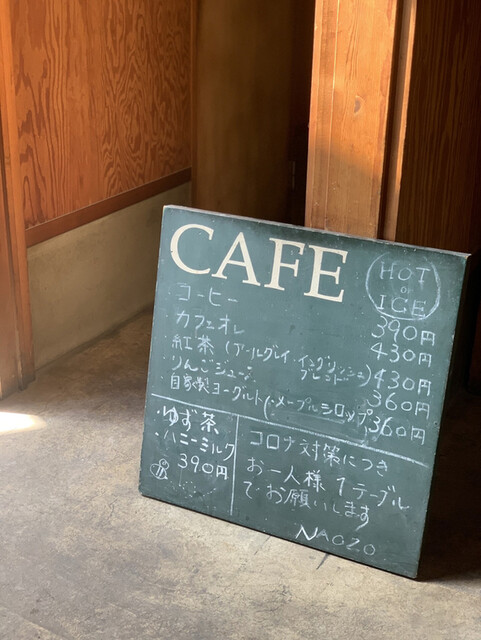 CAFE
HOT
or
ICE
コーヒー 390円
カフェオレ 430円
紅茶 (アールグレイ・イングリッシュブレンド) 430円
りんごジュース 360円
自家製ヨーグルト(・メープルシロップ 360円
・ゆず茶
・ハニーミルク
390円
コロナ対策につき
お一人様1テーブル
でお願いします
NAOZO